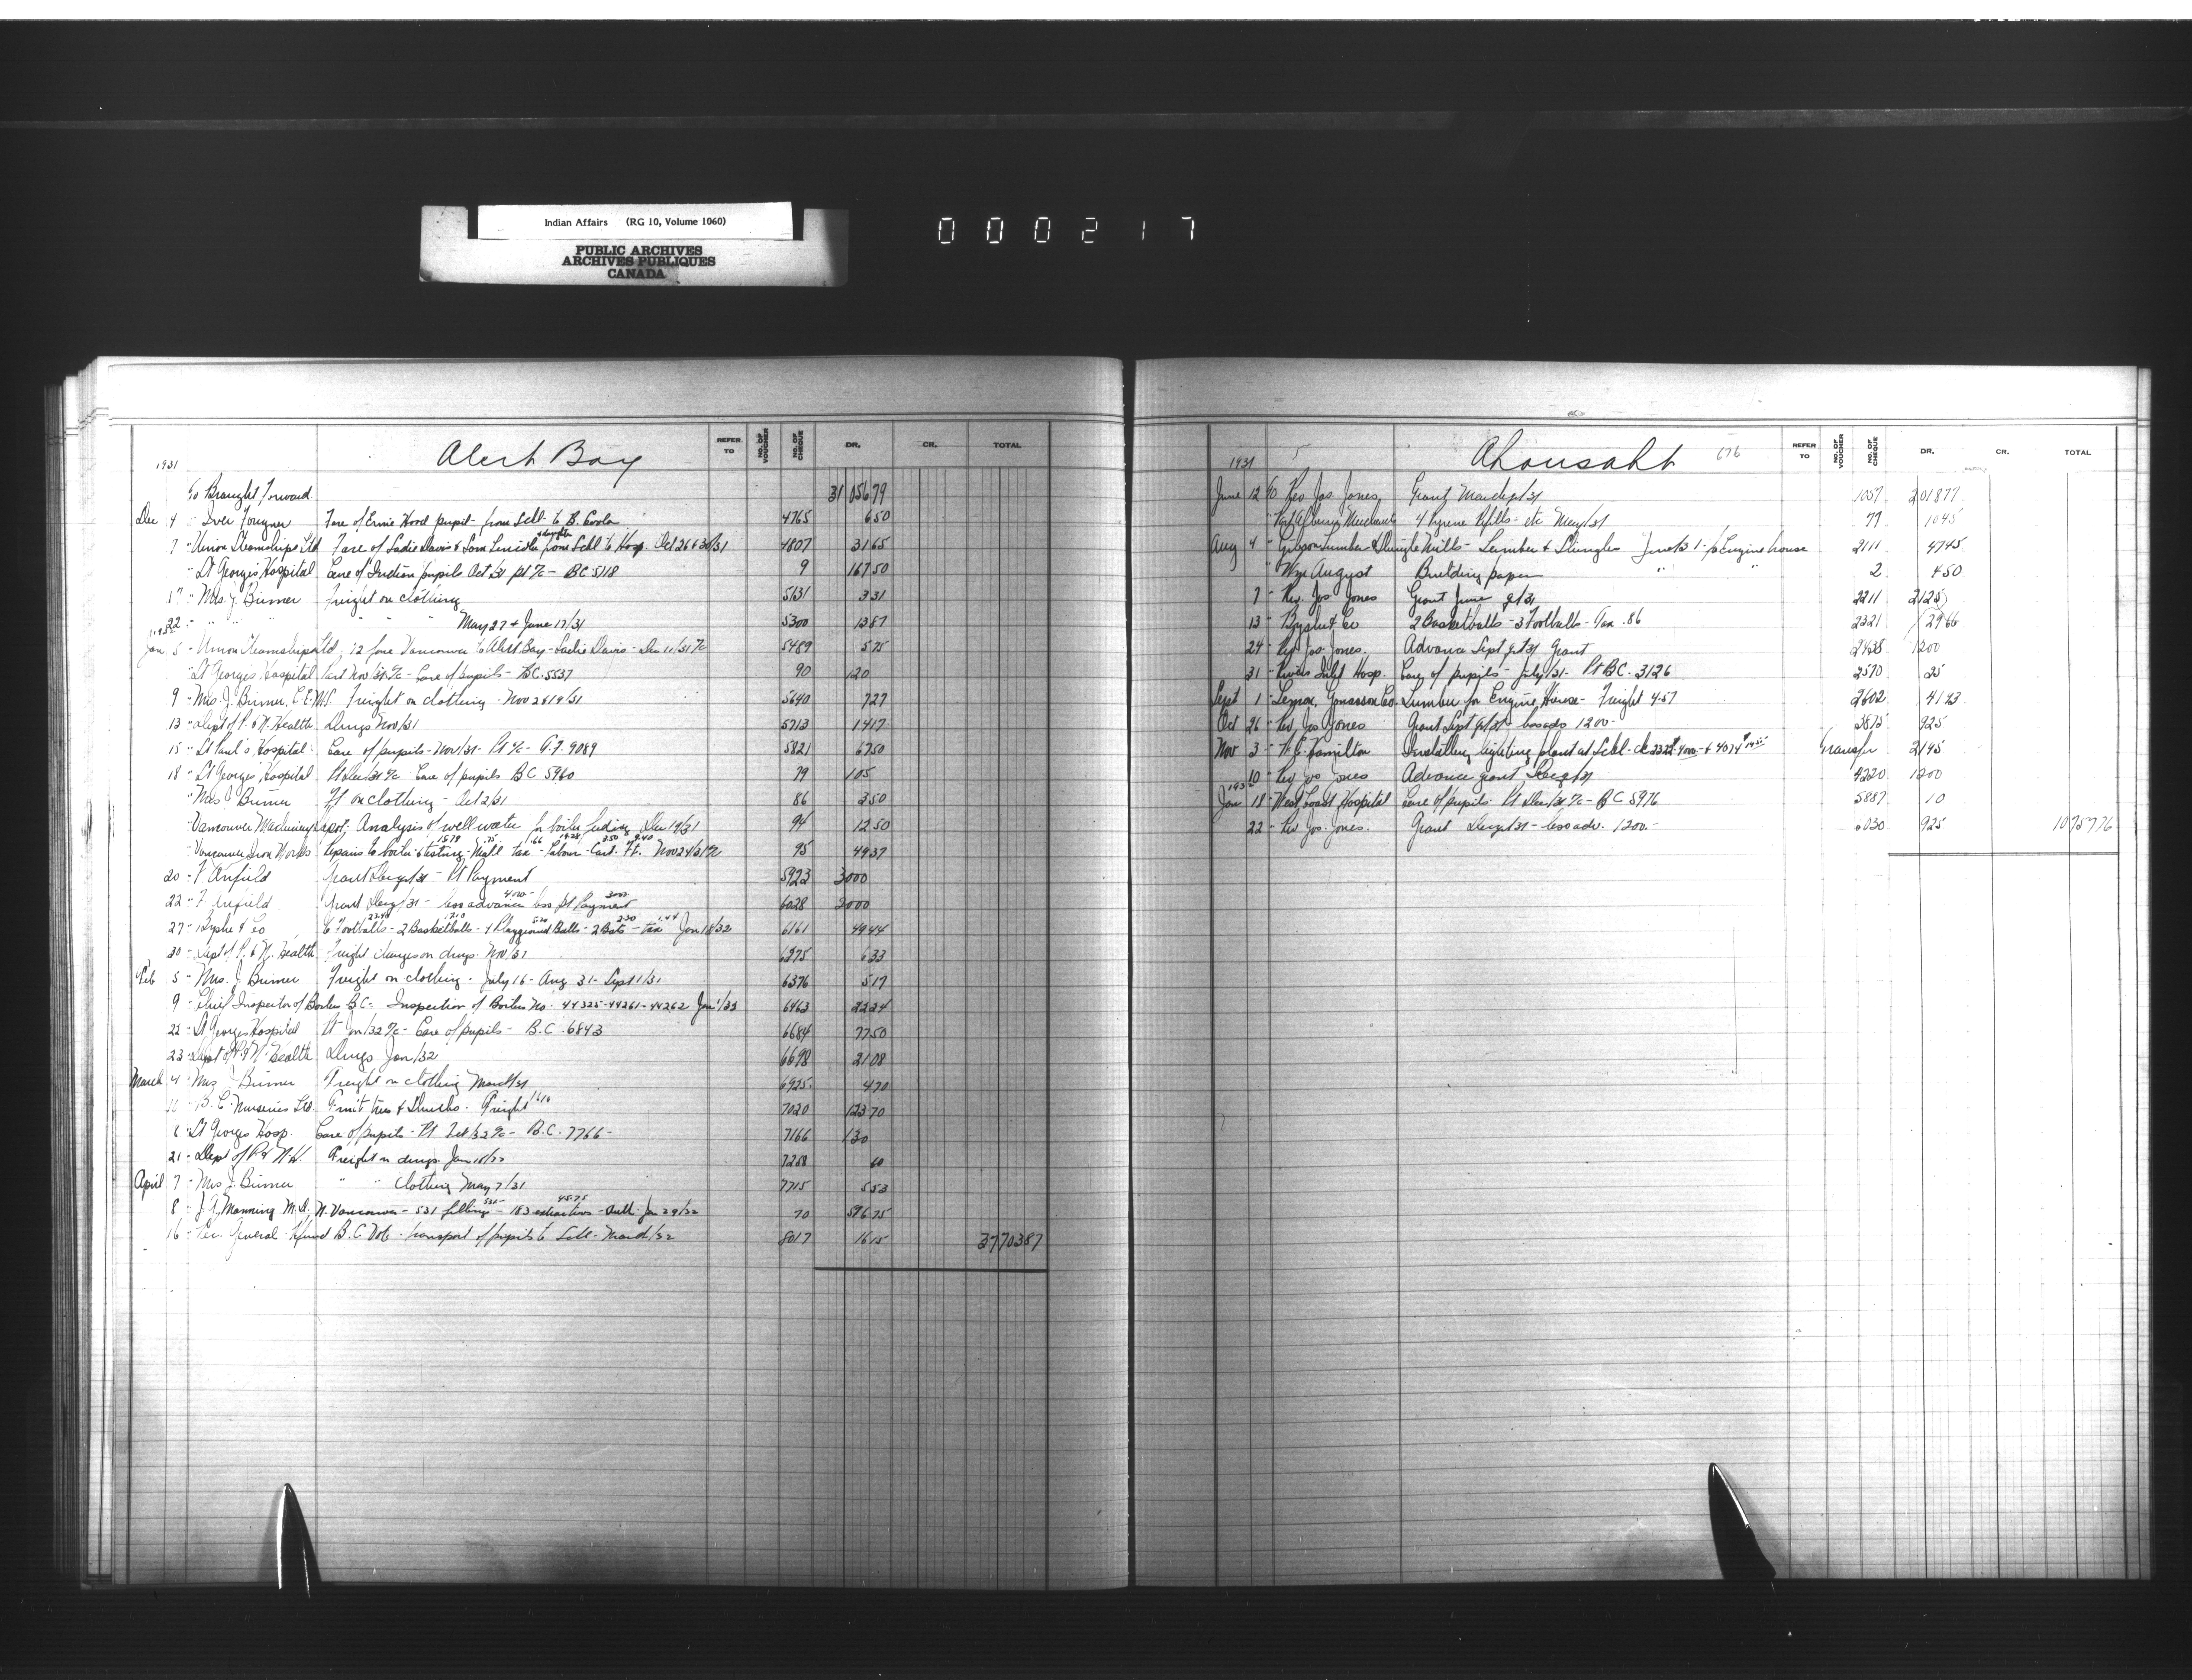 Indian Affairs (RG 10, Volume 1060)
PUBLIC ARCHIVES
ARCHIVES PUBLIQUES
CANADA
000217
Alert Bay
REFER TO NO. OF VOUCHER NO. OF CHEQUE DR. CR. TOTAL
1931
To Brought Forward 31 056 79
Dec 4 " Iver Fougner Fare of Ernie Hood pupil - from Schl to B. Coola 4765 6 50
7 " Union Steamships Ltd Fare of Sadie Davis & Sam Lincoln from Schl to Hosp Oct 26 & 30/31 4807 31 65
" St Georges Hospital Care of Indian pupils Oct 31 pt a/c - BC 5118 9 167 50
17 " Mrs. J. Birmer Freight on clothing 5131 3 31
22 " " " " May 27 & June 17/31 5300 13 87
1932
Jan 5 " Union Steamships Ltd; 12 fare Vancouver to Alert Bay - Sadie Davis - Dec 11/31 a/c 5489 5 75
" St Georges Hospital Part Nov 31 a/c - Care of pupils - BC 5537 90 120
9 " Mrs. J. Birmer, C.E.M.S. Freight on clothing - Nov 2 & 19/31 5640 7 27
13 " Dept of P. & N. Health Drugs Nov/31 5713 14 17
15 " St Paul's Hospital Care of pupils - Nov/31 - Pt a/c - G.F. 9089 5821 67 50
18 " St Georges Hospital Pt Dec/31 a/c Care of pupils BC 5960 79 105
" Mrs J Birmer Ft on clothing - Oct 2/31 86 3 50
" Vancouver Machinery Depot; Analysis of well water for boiler feeding Dec 19/31 94 12 50
" Vancouver Iron Works Repairs to boiler & testing - Matl tax - Labour - Cart. Ft. Nov 24/31 a/c 95 49 37
20 " F Anfield Grant Dec qr/31 - Pt Payment 5923 3000
22 " F. Anfield Grant Dec qr/31 - less advance 4000 - less pt Payment 3000 6028 2000
27 " Bryshe & Co 6 Footballs - 2 Basketballs - 4 Playground Balls - 2 Bats - tax Jan 18/32 6161 49 44
30 " Dept of P. & N. Health Freight charges on drugs Nov/31 6275 6 33
Feb 5 " Mrs. J. Birmer Freight on clothing - July 16 - Aug 31 - Sept 1/31 6376 5 17
9 " Chief Inspector of Boilers B.C. Inspection of Boilers No. 44325-44261-44262 Jan 1/32 6463 22 24
22 " St Georges Hospital Pt Jan/32 a/c - Care of pupils - B.C. 6843 6684 77 50
23 " Dept of P. & N. Health Drugs Jan/32 6698 21 08
March 4 " Mrs J Birmer Freight on clothing March/31 6925 4 70
" B.C. Nurseries Ltd. Fruit trees & Shrubs. Freight 7020 123 70
" St Georges Hosp. Care of pupils - Pt Feb/32 a/c - B.C. 7766 - 7166 130
21 " Dept of P & N H. Freight on drugs Jan 18/32 7258 60
April 7 " Mrs J. Birmer " " Clothing May 7/31 7715 5 53
8 " J.G. Manning M.D., N. Vancouver - 531 fillings - 183 extractions - Auth Jan 29/32 70 576 75
16 " Rec. General Refund B.C. Vote - transport of pupils to Schl - March/32 8017 16 15 37 703 87
Ahousaht 676
REFER TO NO. OF VOUCHER NO. OF CHEQUE DR. CR. TOTAL
1931
June 12 To Rev Jos. Jones, Grant March qr/31 1057 2018 77
" Port Alberni 4 Pyrene Refills - etc May/31 79 10 45
Aug 4 " Gibson Lumber & Shingle Mills - Lumber & Shingles June/31 - for Engine house 2111 47 45
" Wm August Building paper " " 2 4 50
7 " Rev. Jos. Jones Grant June qr 31 2211 2125
13 " Bryshe & Co 2 Basketballs - 3 Footballs - Tax .86 2321 29 66
24 " Rev Jos. Jones. Advance Sept qr 31 Grant 2438 1200
31 " Rivers Inlet Hosp. Care of pupils - July/31 - Pt BC. 3126 2570 25
Sept 1 " Lemon, Gonnason Co. Lumber for Engine House - Freight 4.57 2602 41 23
Oct 26 " Rev Jos Jones Grant Sept qr/31 - less adv 1200 - 3875 925
Nov 3 " Hamilton Installing lighting plant at Schl - Transfer 21 45
10 " Rev Jos Jones Advance grant Dec qr/31 4220 1200
1932
Jan 18 " West Coast Hospital Care of pupils - Pt Dec/31 a/c - BC 5976 5887 10
22 " Rev Jos. Jones. Grant Dec qr 31 - less adv. 1200. - 6030 925 10 757 76